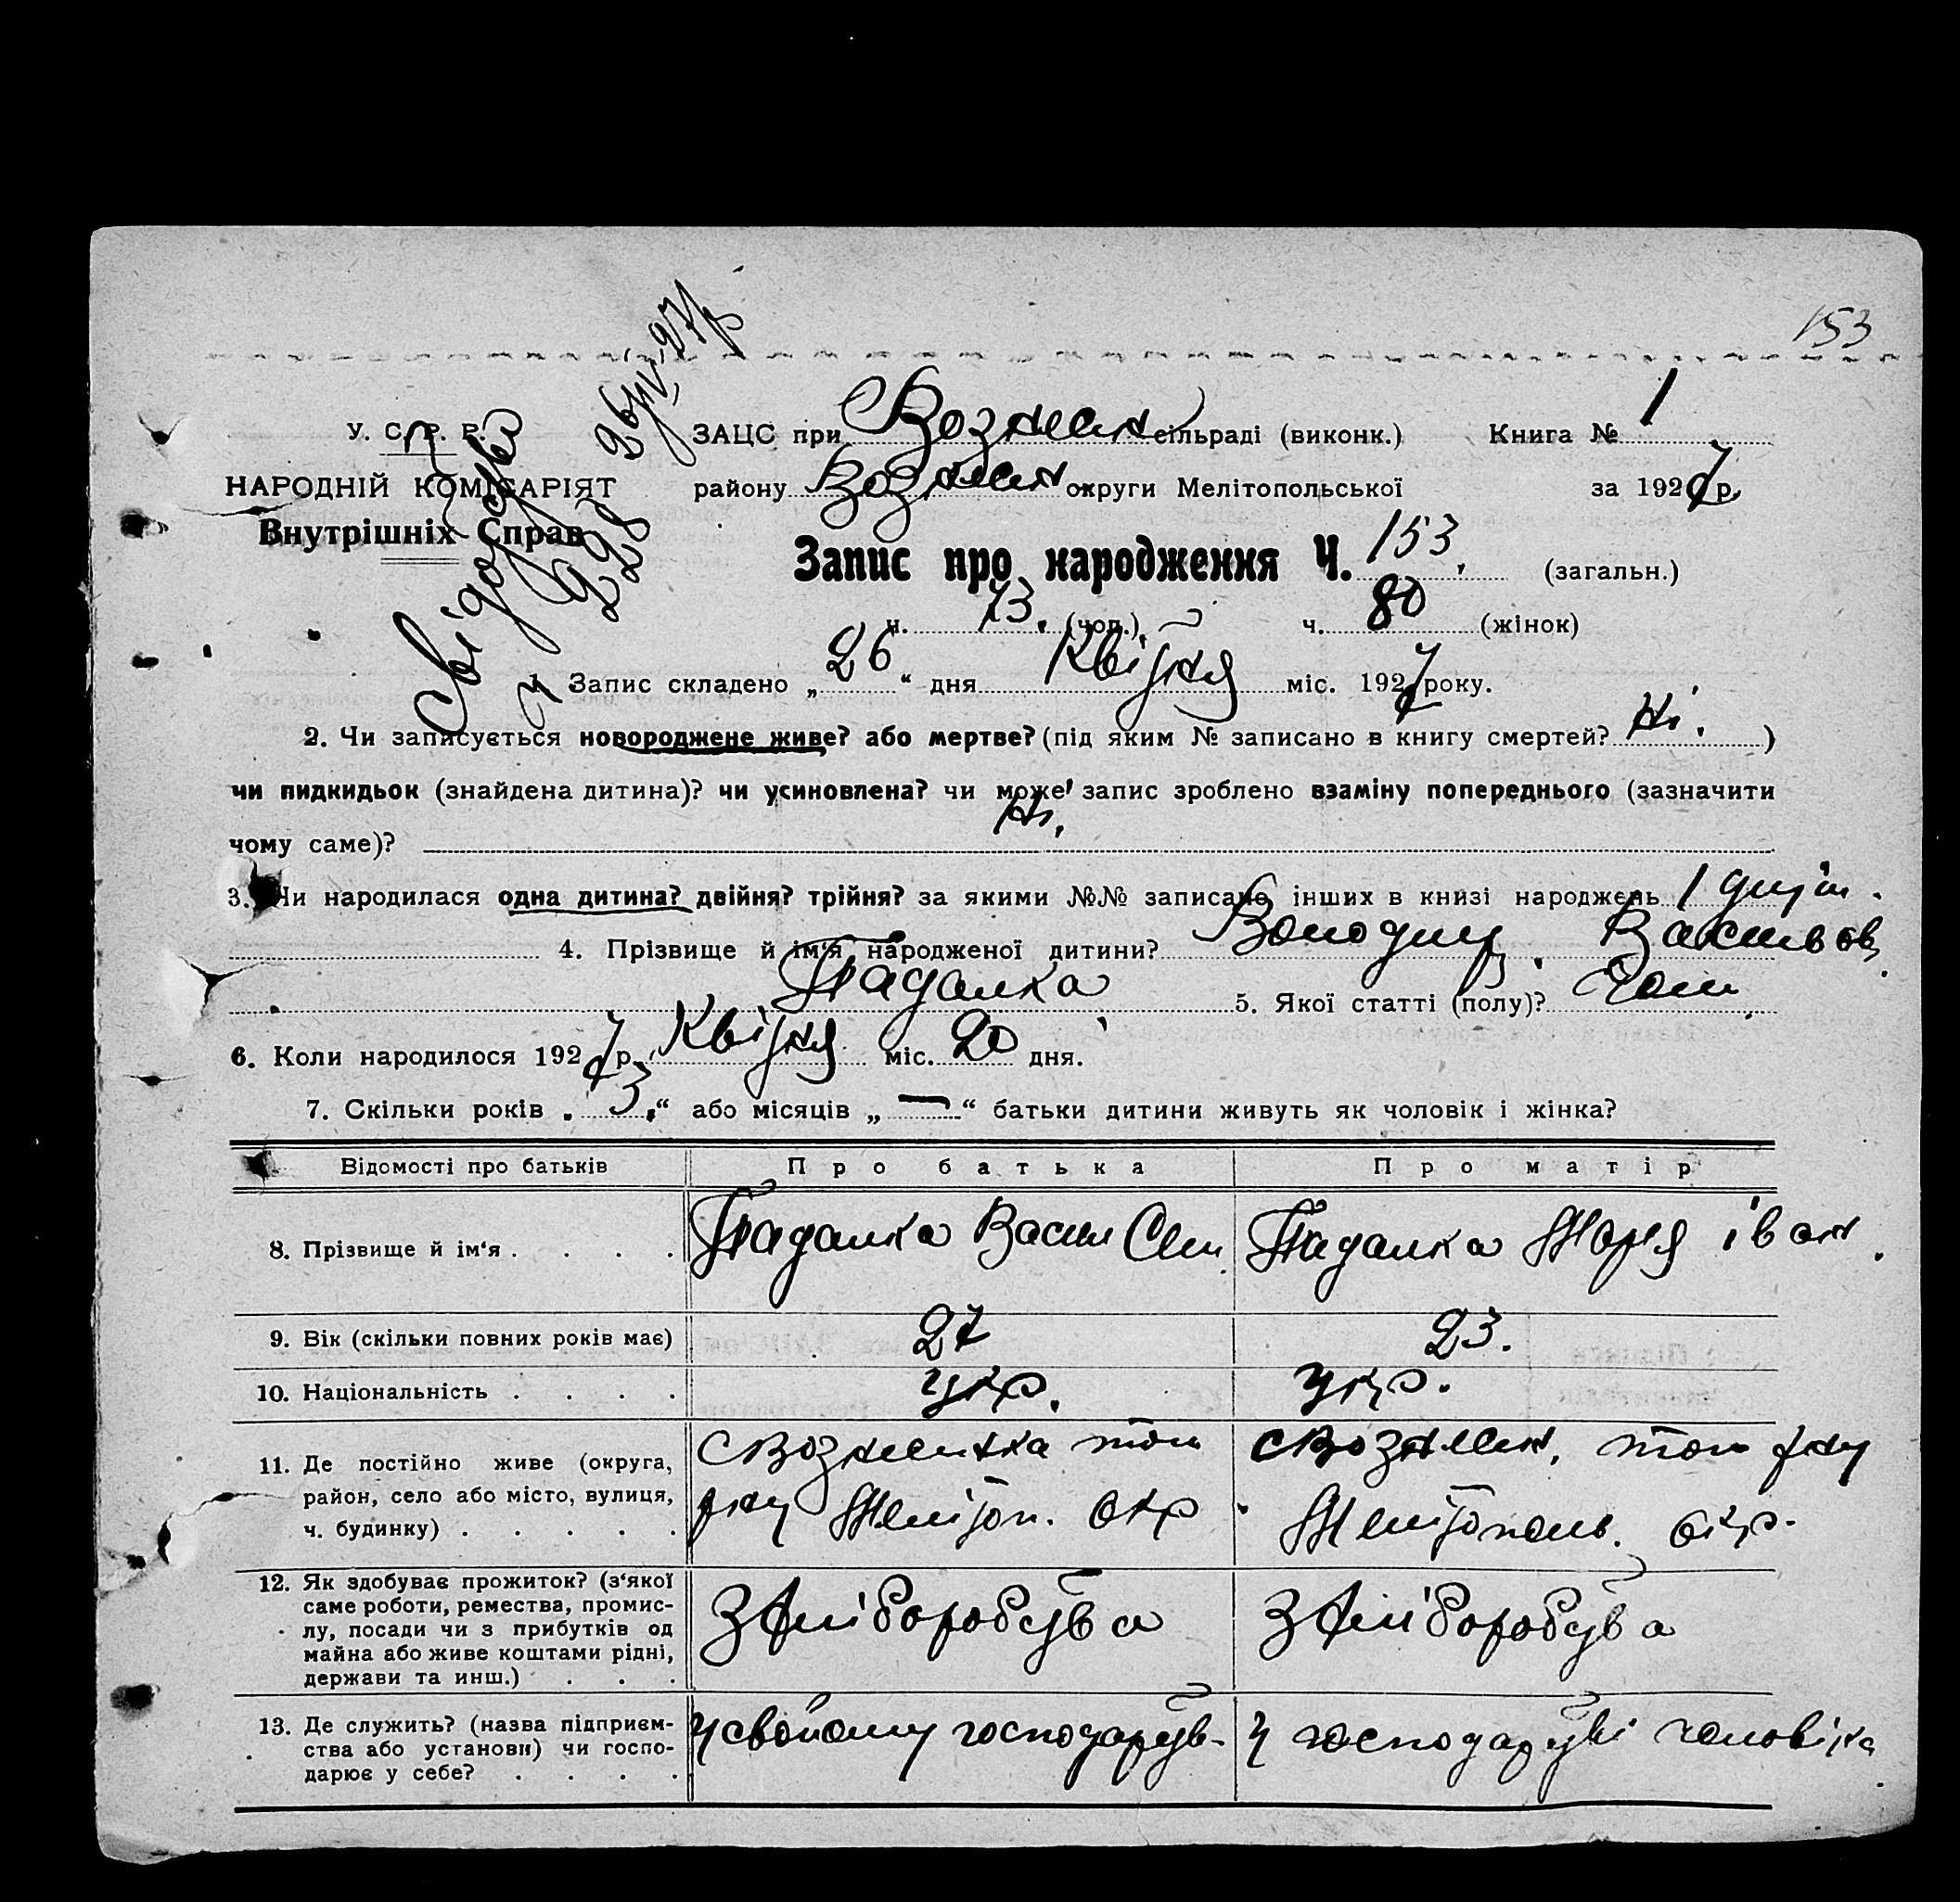 153
У. С. Р. Р.
НАРОДНІЙ КОМІСАРІЯТ
Внутрішніх Справ
ЗАЦС при Вознесен сільраді (виконк.) Книга № 1
району Вознесен округи Мелітопольської за 1927 р.
Запис про народження Ч. 153. (загальн.)
ч. 73. (чол.) ч. 80 (жінок)
1. Запис складено „26“ дня Квітня міс. 1927 року.
2. Чи записується новороджене живе? або мертве? (під яким № записано в книгу смертей? Ні.)
чи пидкидьок (знайдена дитина)? чи усиновлена? чи може запис зроблено взаміну попереднього (зазначити
чому саме)? Ні.
3. Чи народилася одна дитина? двійня? трійня? за якими №№ записано інших в книзі народжень 1 дитин.
4. Прізвище й ім‘я народженої дитини? Володим. Васильов.
Падалка 5. Якої статті (полу)? Чол.
6. Коли народилося 1927 р. Квітня міс. 20 дня.
7. Скільки років „3“ або місяців „—“ батьки дитини живуть як чоловік і жінка?
Відомості про батьків Про батька Про матір
8. Прізвище й ім‘я . . . . Падалка Васил Сем. Падалка Марія Іван.
9. Вік (скільки повних років має) 27 23.
10. Національність . . . . укр. укр.
11. Де постійно живе (округа,
район, село або місто, вулиця,
ч. будинку) . . . . .
с Вознесенка того
р-ну Мелітоп. окр
с Вознесен. того р-ну
Мелітополь. окр.
12. Як здобуває прожиток? (з‘якої
саме роботи, ремества, промис-
лу, посади чи з прибутків од
майна або живе коштами рідні,
держави та инш.) . . .
З хліборобства З хліборобства
13. Де служить? (назва підприєм-
ства або установи) чи госпо-
дарює у себе? . . . .
У свойому господарств- У господарстві чоловіка